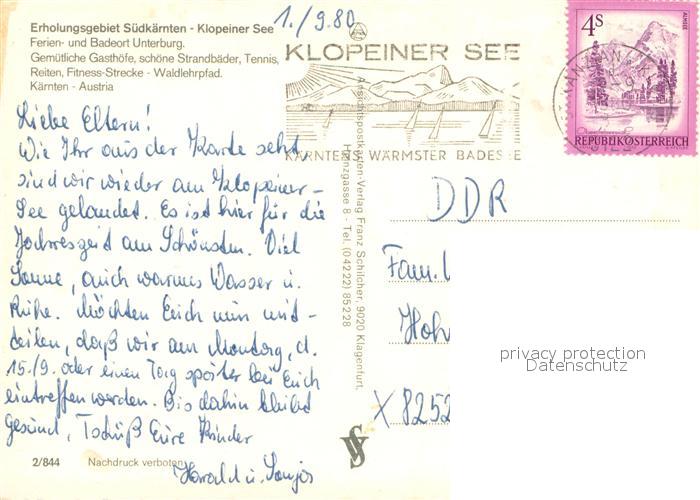 1./9.80
Erholungsgebiet Südkärnten - Klopeiner See
Ferien- und Badeort Unterburg.
Gemütliche Gasthöfe, schöne Strandbäder, Tennis,
Reiten, Fitness-Strecke - Waldlehrpfad.
Kärnten - Austria
KLOPEINER SEE
KÄRNTENS WÄRMSTER BADESEE
4S
REPUBLIK ÖSTERREICH
Liebe Eltern!
Wie Ihr aus der Karte seht,
sind wir wieder am Klopeiner-
See gelandet. Es ist hier für die
Jahreszeit am Schönsten. Viel
Sonne, auch warmes Wasser u.
Ruhe. Möchten Euch nun mit-
teilen, daß wir am Montag, d.
15./9. oder einen Tag später bei Euch
eintreffen werden. Bis dahin bleibt
gesund, Tschüß Eure Kinder
Harald u. Sonja
2/844 Nachdruck verboten
Ansichtspostkarten-Verlag Franz Schilcher, 9020 Klagenfurt,
Heinzgasse 8 - Tel. (04222) 85228
DDR
Fam.
Hoh
X 8252
privacy protection
Datenschutz